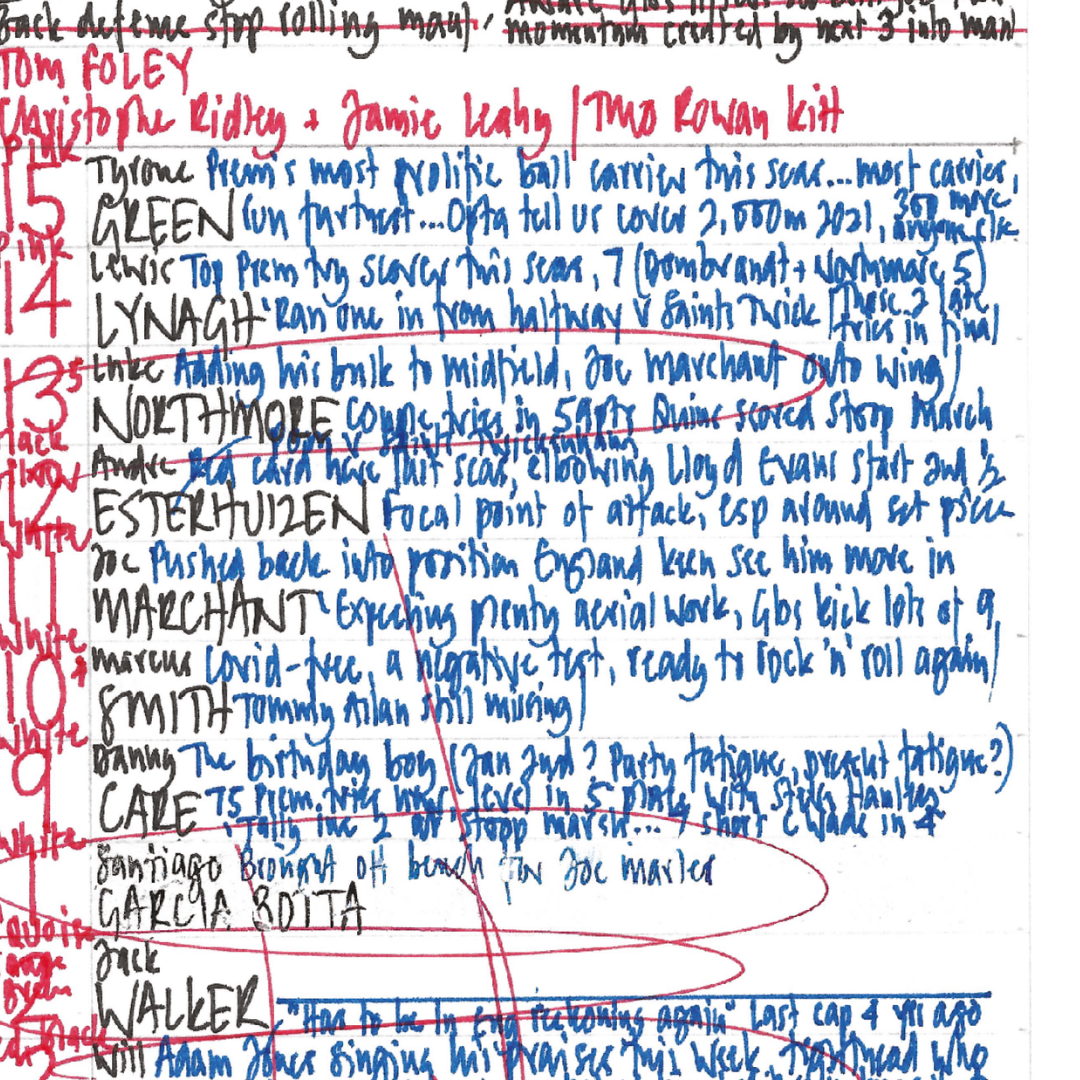 Back defence stop rolling maul,
momentum created by next 3 into maul
TOM FOLEY
Christophe Ridley + Jamie Leahy | TMO Rowan Kitt
Pink
15 Tyrone Prem's most prolific ball carrier this seas... most carries,
GREEN run furthest... Opta tell us cover 2,000m 2021, 300 more anyone else
Pink
14 Lewis Top Prem try scorer this seas, 7 (Dombrandt + Northmore 5)
LYNAGH Ran one in from halfway v Saints Twick | Those 2 late tries in final
13 5 Luke Adding his bulk to midfield, Joe Marchant onto wing)
NORTHMORE Couple tries in 59pts Quins scored Stoop March
Black
12 Andre Red card here last seas, elbowing Lloyd Evans start 2nd ½
ESTERHUIZEN Focal point of attack, esp around set piece
White
11 Joe Pushed back into position England keen see him more in
MARCHANT Expecting plenty aerial work, Glos kick lots of 9,
White
10 * Marcus Covid-free, a negative test, ready to rock 'n' roll again)
SMITH Tommy Allan still missing)
White
9 Danny The birthday boy (Jan 2nd? Party fatigue, present fatigue?)
CARE 75 Prem. tries level in 5 place with Steve Hanley
Tally inc 2 at Stoop March... 7 short C Wade in 4
White
1 Santiago Brought off bench for Joe Marler
GARCIA BOTTA
Jack
2 WALKER "Has to be in Eng reckoning again" Last cap 4 yrs ago
Black
3 Will Adam Jones singing his praises this week, tighthead who